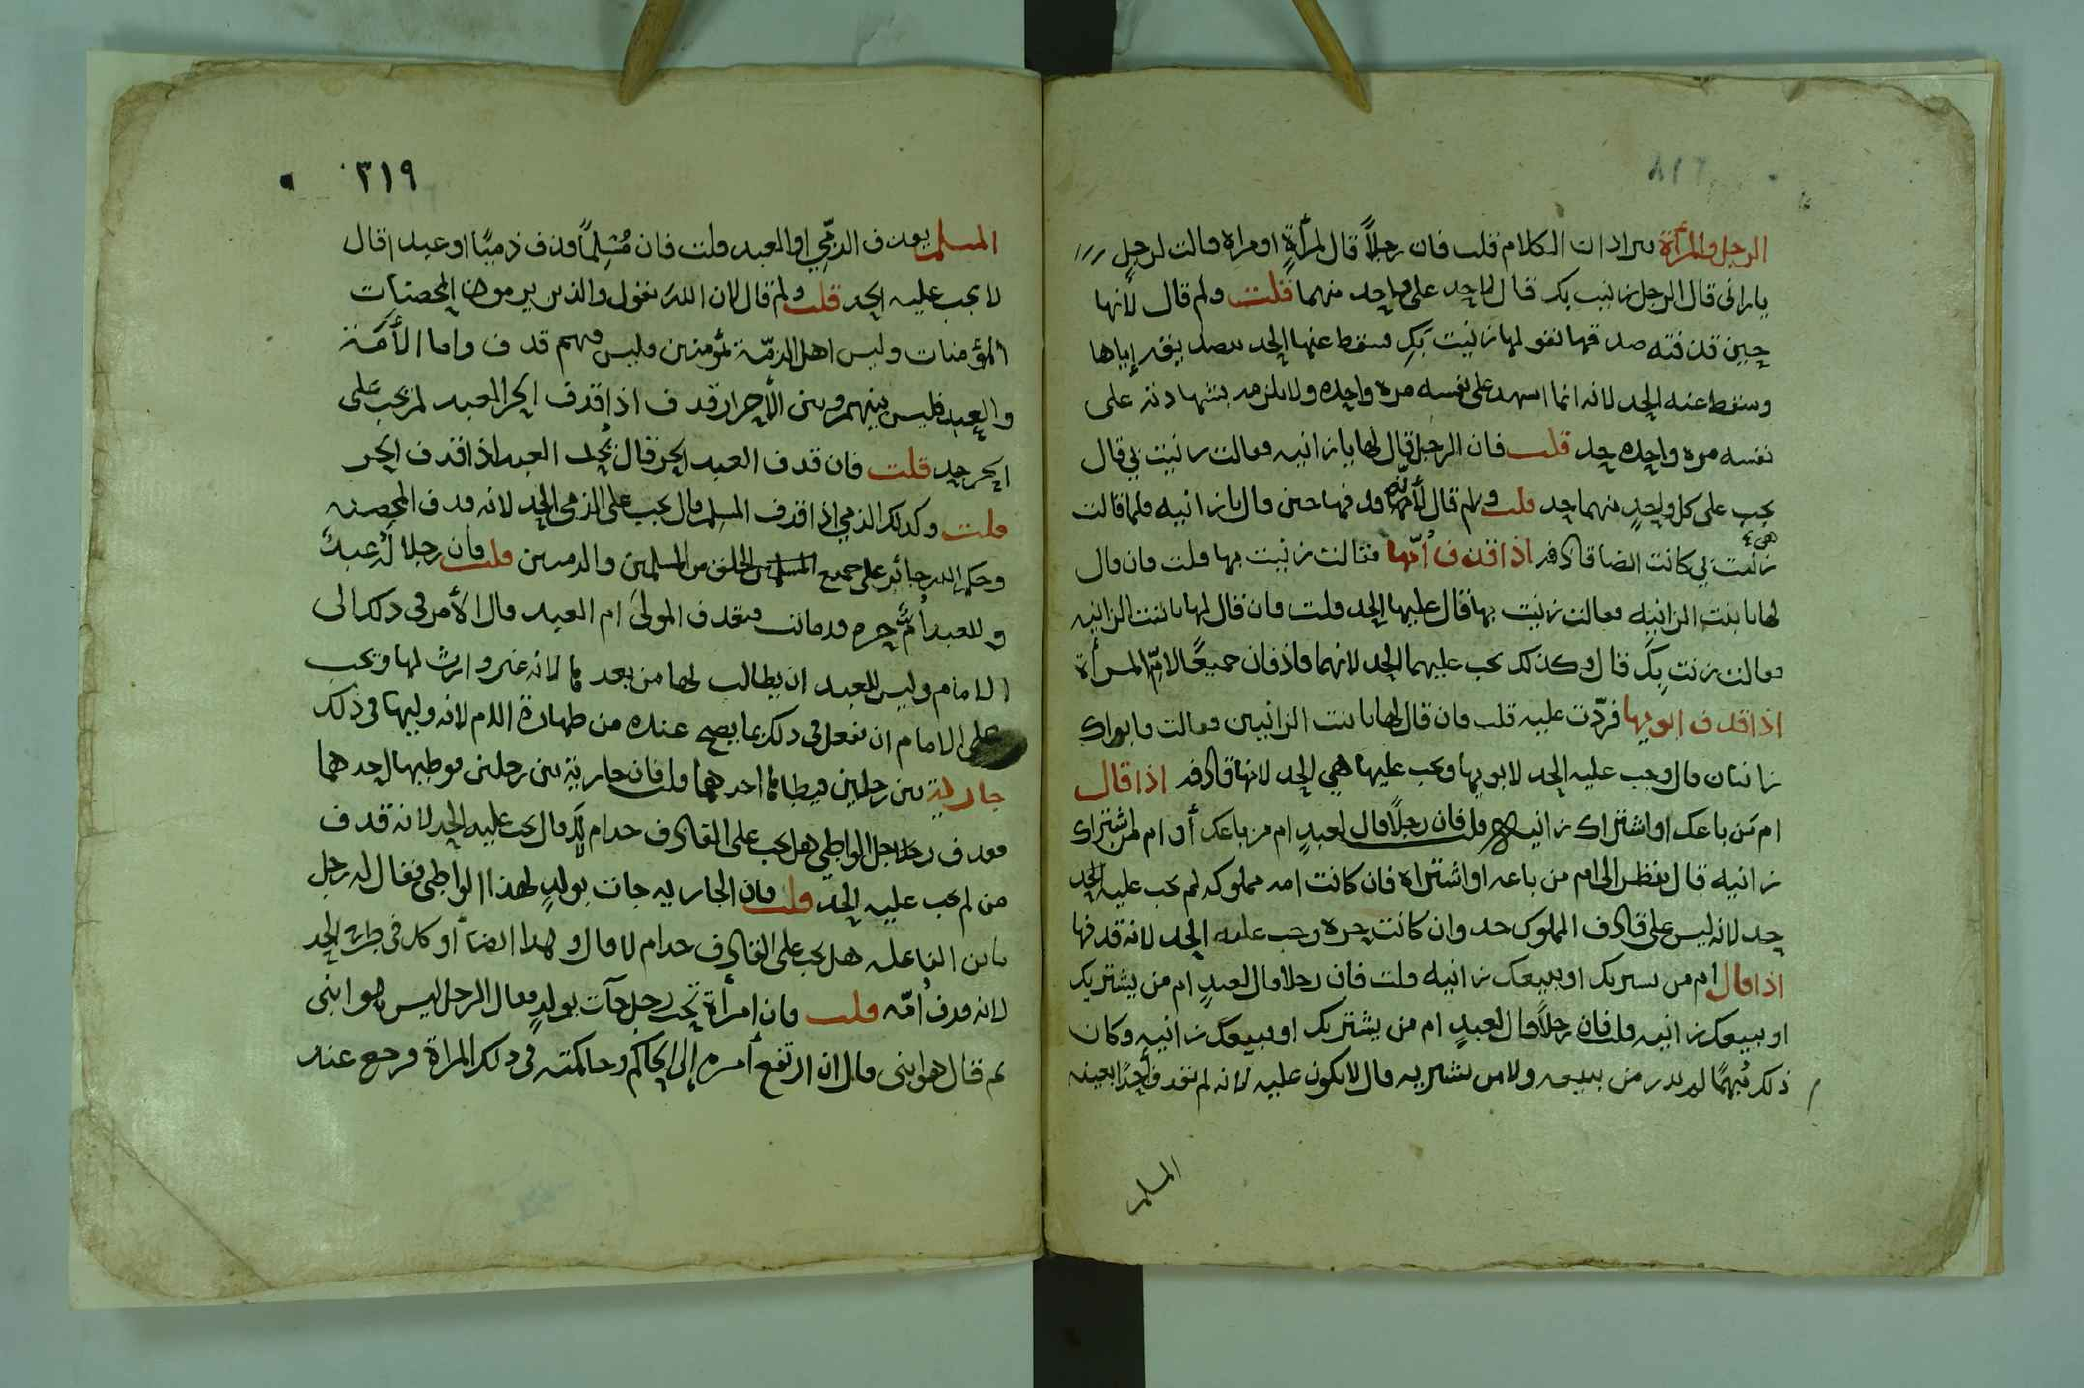 ٣١٨
الرجل والمرأة يترادان الكلام قلت فان رجلاً قال لمرأةٍ او مراة قالت لرجلٍ
يازانى قال الرجل زنيت بك قال لا حد على واحد منهما قلت ولم قال لأنها
حين قذفته صدقها بقوله لها زنيت بكِ فسقط عنها الحد بتصديقه إياها
وسقط عنه الحد لانه انما اشهد على نفسه مره واحده ولا يلزمه بشهادته على
نفسه مره واحده حد قلت فان الرجل قال لها يا زانيه فقالت زنيت بي قال
يجب على كل واحدٍ منهما حد قلت ولم قال لأنه قد قذفها حين قال يا زانيه فلما قالت
زنيت بي كانت هي ايضا قاذفه اذا قذف أمّها فقالت زنيت بها قلت فان قال
لها يا بنت الزانيه فقالت زنيت بها قال عليها الحد قلت فان قال لها يا بنت الزانيه
فقالت زنت بِكَ قال وكذلك يجب عليهما الحد لانهما قاذفان جميعًا لامّ المرأة
اذا قذف ابويها فردّت عليه قلت فان قال لها يا بنت الزانيين فقالت فابواك
زانيان قال وجب عليه الحد لابويها ويجب عليها هي الحد لانها قاذفه اذا قال
ام من باعك او اشتراك زانيه قلت فان رجلاً قال لعبدٍ ام من باعك أو ام من اشتراك
زانيه قال ينظر الى ام من باعه او اشتراه فان كانت امه مملوكه لم يجب عليه الحد
حد لانه ليس على قاذف المملوك حد وان كانت حره وجب عليه الحد لانه قذفها
اذا قال ام من يشتريك او يبيعك زانيه قلت فان رجلا قال لعبدٍ ام من يشتريك
او يبيعك زانيه قلت فان رجلاً قال لعبدٍ ام من يشتريك او يبيعك زانيه وكان
ذلك مُبهمًا لم يدر من يبيعه ولا من يشتريه قال لا يكون عليه لانه لم يقذف أحدًا بعينه
المسلم
٣١٩
المسلم يقذف الذمّي او العبد قلت فان مُسْلِماً قذف ذميًا او عبدا قال
لا يجب عليه الحد قلت ولم قال لان الله يقول والذين يرمون المحصنات
المؤمنات وليس اهل الذمّة بمؤمنين وليس فيهم قذف واما الأمَة
والعبد فليس بينهم وبين الأحرار قذف اذا قذف الحر العبد لم يجب على
الحر حد قلت فان قذف العبد الحر قال يُحد العبد اذا قذف الحر
قلت وكذلك الذمي اذا قذف المسلم قال يجب على الذمي الحد لانه قذف المحصنه
وحكم الله جائز على جميع الخلق من المسلمين والذميين قلت فان رجلا له عبدٌ
وللعبد أمٌّ حره قد ماتت فقذف المولىَ ام العبد قال الأمر في ذلك الى
الامام وليس للعبد ان يطالب لها من بعد لانه غير وارث لها ويجب
على الامام ان يفعل في ذلك بما يصح عنده من طهارة الام لانه وليها في ذلك
جارية بين رجلين فيطاها احدهما قلت فان جارية بين رجلين فوطيها احدهما
فقذف رجل الواطي هل يجب على القاذف حد ام لا قال يجب عليه الحد لانه قذف
من لم يجب عليه الحد قلت فان الجاريه جات بولدٍ لهذا الواطئ فقال له رجل
يابن الفاعله هل يجب على القاذف حد ام لا قال وهذا ايضاً أوكد في طرح الحد
لانه قذف أمّه قلت فان امرأة تحت رجل جآت بولدٍ فقال الرجل ليس هو ابني
ثم قال هو ابنى قال ان ارتفع أمره إلى الحاكم وحاكمته في ذلك المراة فرجع عند